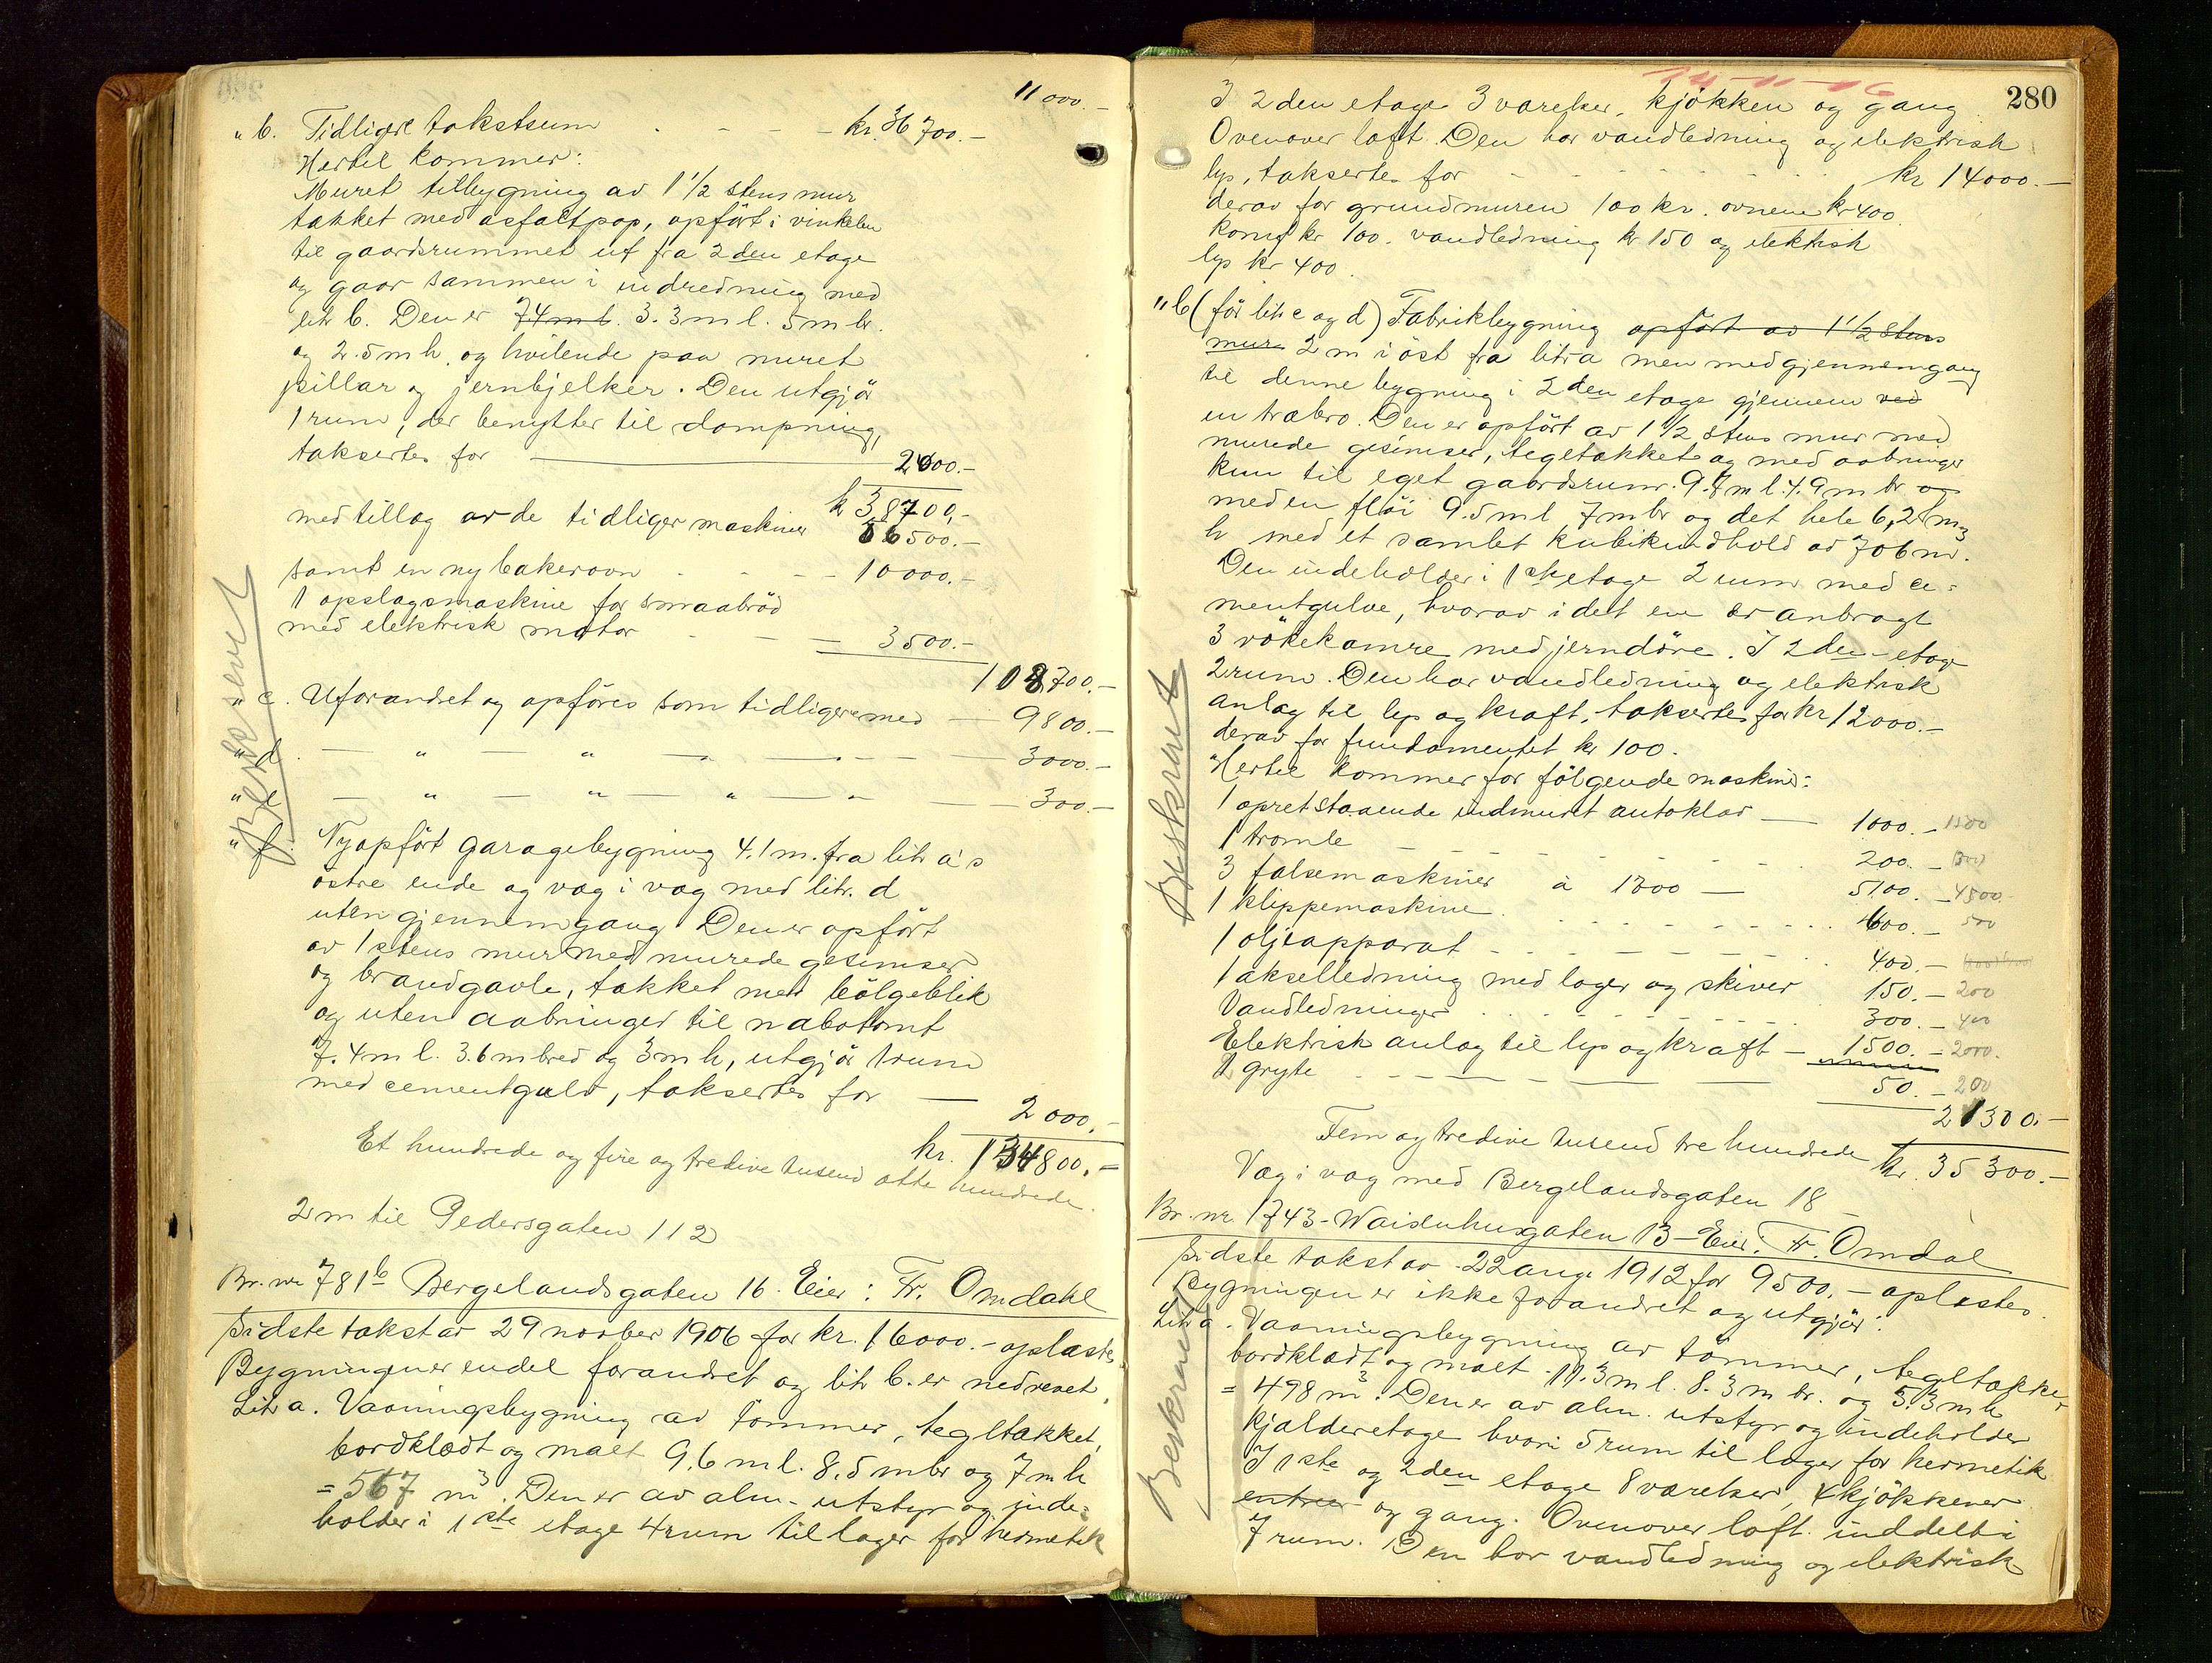 11 000.-
" b. Tidligere takstsum - - - kr. 36 700.-
Hertil kommer:
Muret tilbygning av 1 1/2 stens mur
tækket med asfaltpap, opført i vinkelen
til gaardsrummet ut fra 2den etage
og gaar sammen i indredning med
litr b. Den er 74 m l. 3.3 m l. 5 m br.
og 2.5 m h. og hvilende paa muret
pillar og jernbjelker. Den utgjør
1 rum, der benyttes til dampning,
taksertes for 2000.-
kr 38700.-
med tillæg av de tidligere maskiner 56500.-
samt en ny bakerovn - - - 10000.-
1 opslagsmaskine for smaabrød
med elektrisk motor - - - 3500.-
108700.-
" c. Uforandret og opføres som tidligere med - 9800.-
" d. — " — " — " — " — 3000.-
" e. — " — " — " — " — 300.-
" f. Nyopført garagebygning 4.1 m. fra litr a's
østre ende og væg i væg med litr. d
uten gjennemgang. Den er opført
av 1 stens mur med murede gesimser
og brandgavle, tækket med bølgeblik
og uten aabninger til nabotomt
7.4 m l. 3.6 m bred og 3 m h, utgjør 1 rum
med cementgulv, taksertes for — 2000.-
kr. 134800.-
Et hundrede og fire og tredive tusend otte hundrede.
2 m til Pedersgaten 112
Br. nr 781b Bergelandsgaten 16. Eier: Fr. Omdahl
Sidste takst av 29 novber 1906 for kr. 16000.- oplæstes
Bygningen er endel forandret og litr b. er nedrevet.
Litr a. Vaaningsbygning av tømmer, tegltækket,
bordklædt og malt 9.6 m l. 8.5 m br og 7 m h
= 567 m3. Den er av alm. utstyr og inde=
holder i 1ste etage 4 rum til lager for hermetik
Beskrevet
24-11-16
280
I 2den etage 3 værelser, kjøkken og gang
Ovenover loft. Den har vandledning og elektrisk
lys, taksertes for - - - - kr 14000.-
derav for grundmuren 100 kr. ovnene kr 400
komf kr 100. vandledning kr 150 og elektrisk
lys kr 400.
" b (før litr c og d) Fabrikbygning opført av 1 1/2 stens
mur 2 m i øst fra litr a men med gjennemgang
til denne bygning i 2den etage gjennem ved
en træbro. Den er opført av 1 1/2 stens mur med
murede gesimser, tegltækket og med aabninger
kun til eget gaardsrum. 9.8 m l. 4.9 m br. og
med en fløi 9.5 m l 7 m br og det hele 6,28 m
h med et samlet kubikindhold av 706 m3.
Den indeholder i 1ste etage 2 rum med ce=
mentgulve, hvorav i det ene er anbragt
3 røkekamre med jerndøre. I 2den etage
2 rum. Den har vandledning og elektrisk
anlæg til lys og kraft, taksertes for kr 12000.-
derav for fundamentet kr 100.
Hertil kommer for følgende maskiner:
1 opretstaaende indmuret autoklav — 1000.- 1500
1 tromle - - - 200.- 300
3 falsemaskiner à 1700 — 5100.- 4500.
1 klippemaskine - - - 600.- 500
1 oljeapparat - - - 400.-
1 akselledning med lager og skiver 150.- 200
Vandledninger - - - 300.- 400
Elektrisk anlæg til lys og kraft - 1500.- 2000.
1 gryte - - - 50.- 200
21300.-
Fem og tredive tusend tre hundrede kr. 35300.-
Væg i væg med Bergelandsgaten 18
Br. nr. 1743 - Waisenhusgaten 13 - Eier. Fr. Omdal
Sidste takst av 22 aug. 1912 for 9500.- oplæstes.
Bygningen er ikke forandret og utgjør:
Litr a. Vaaningsbygning av tømmer, tegltækket,
bordklædt og malt 11.3 m l. 8.3 m br. og 5.3 m h
= 498 m3. Den er av alm. utstyr og indeholder
kjælderetage hvori 5 rum til lager for hermetik
I 1ste og 2den etage 8 værelser, 4 kjøkkener
entreer og gang. Ovenover loft inddelt i
7 rum. Den har vandledning og elektrisk
Beskrevet
Beskrevet